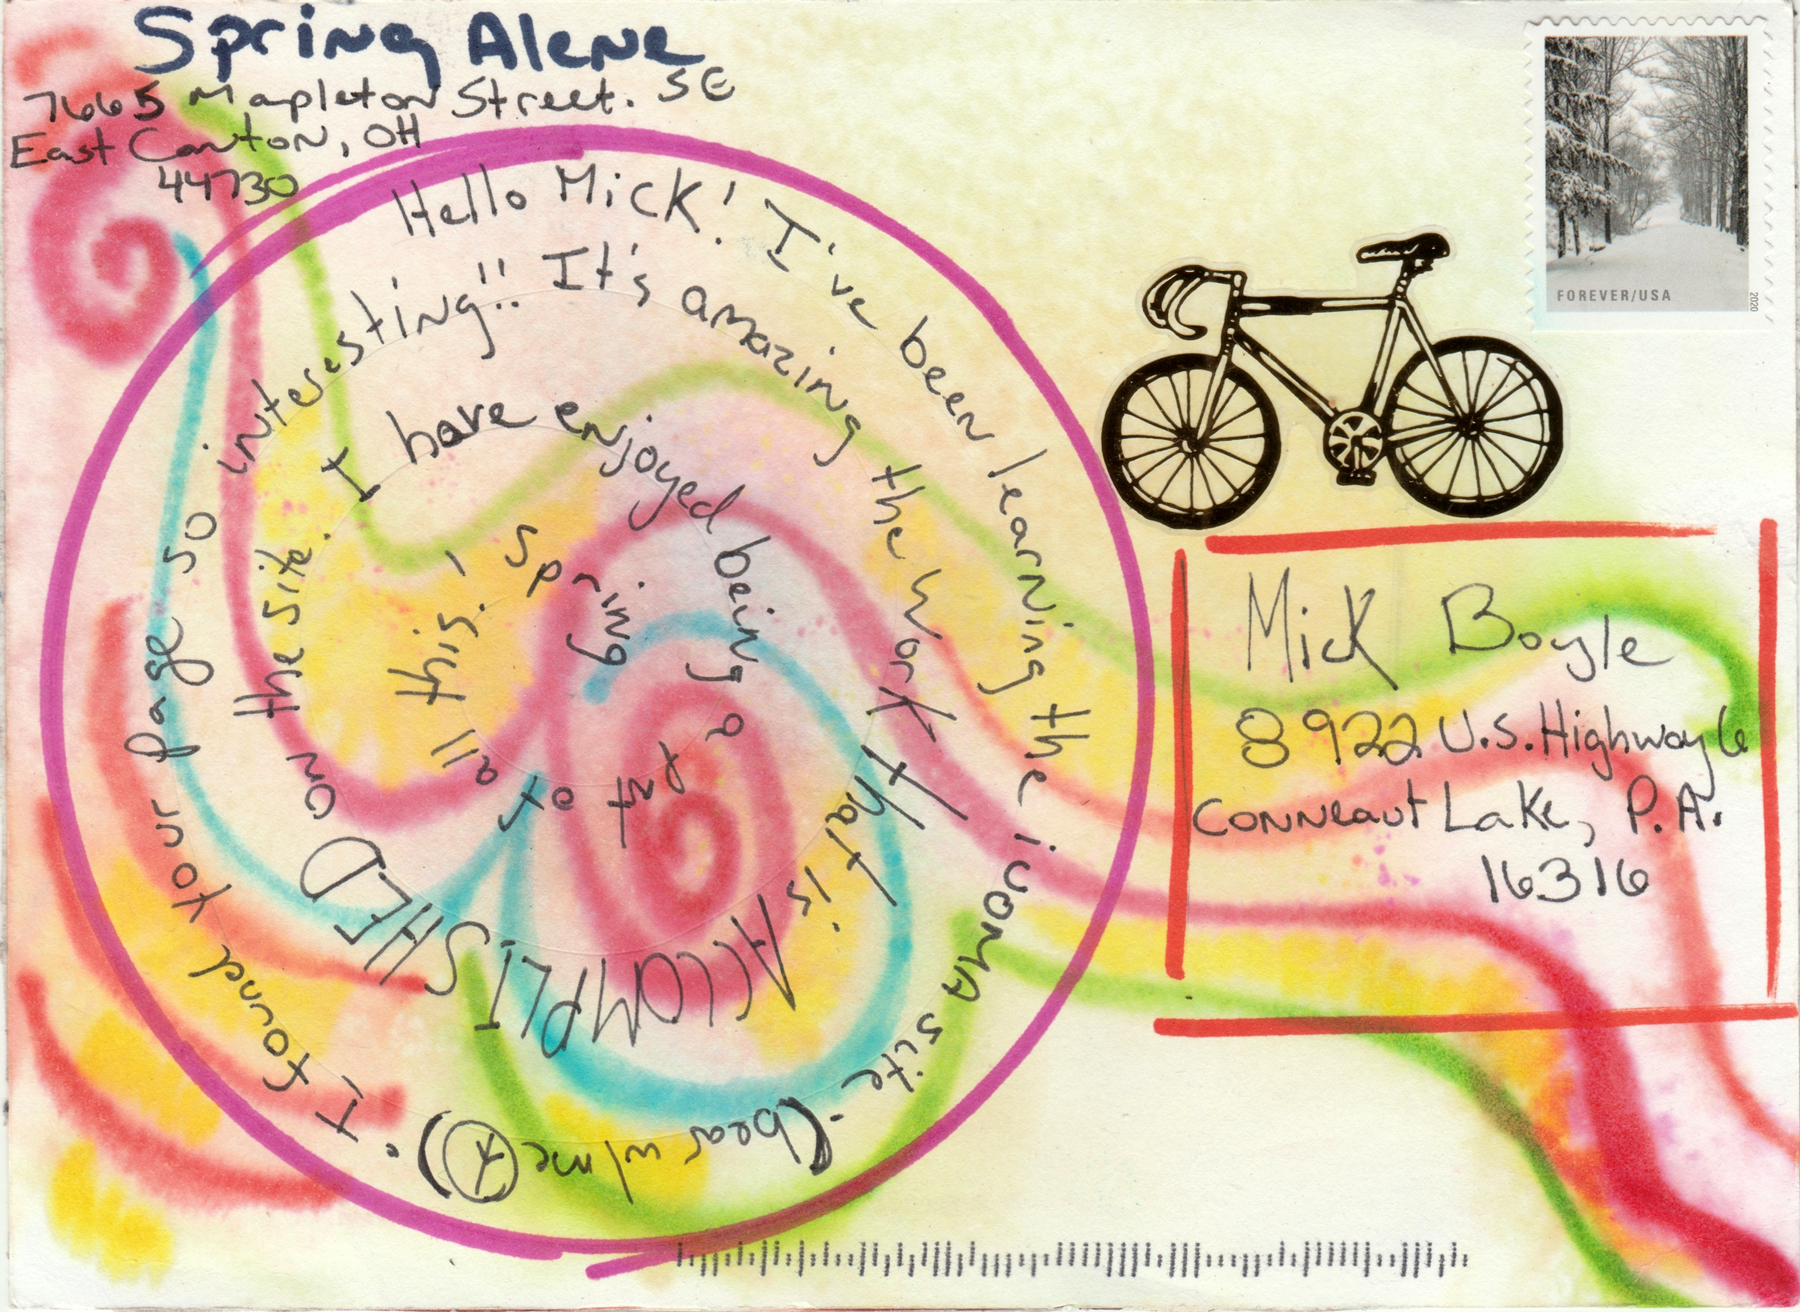 Spring Alene
7665 Mapleton Street. SE
East Canton, OH
44730
FOREVER/USA
2020
Hello Mick! I've been learning the IUOMA site - (bear w/me). I found your page so interesting!! It's amazing the work that is ACCOMPLISHED on the site. I have enjoyed being a part of all this. , Spring
Mick Boyle
8922 U.S. Highway 6
Conneaut Lake, P.A.
16316